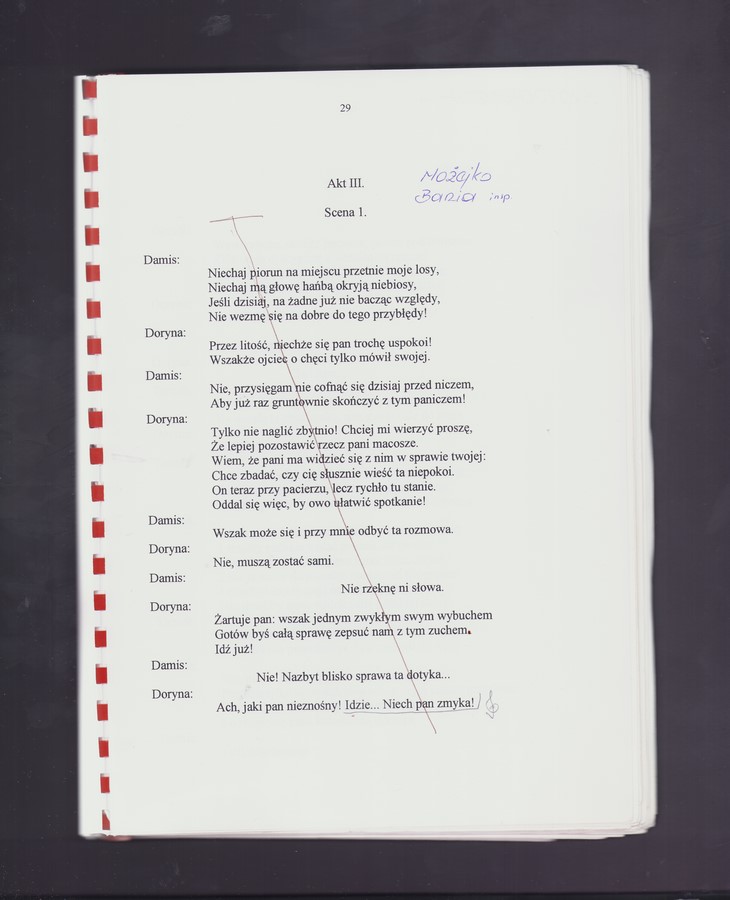 29
Akt III.
Możejko
Bania insp.
Scena 1.
Damis:
Niechaj piorun na miejscu przetnie moje losy,
Niechaj mą głowę hańbą okryją niebiosy,
Jeśli dzisiaj, na żadne już nie bacząc względy,
Nie wezmę się na dobre do tego przybłędy!
Doryna:
Przez litość, niechże się pan trochę uspokoi!
Wszakże ojciec o chęci tylko mówił swojej.
Damis:
Nie, przysięgam nie cofnąć się dzisiaj przed niczem,
Aby już raz gruntownie skończyć z tym paniczem!
Doryna:
Tylko nie naglić zbytnio! Chciej mi wierzyć proszę,
Że lepiej pozostawić rzecz pani macosze.
Wiem, że pani ma widzieć się z nim w sprawie twojej:
Chce zbadać, czy cię słusznie wieść ta niepokoi.
On teraz przy pacierzu, lecz rychło tu stanie.
Oddal się więc, by owo ułatwić spotkanie!
Damis:
Wszak może się i przy mnie odbyć ta rozmowa.
Doryna:
Nie, muszą zostać sami.
Damis:
Nie rzeknę ni słowa.
Doryna:
Żartuje pan: wszak jednym zwykłym swym wybuchem
Gotów byś całą sprawę zepsuć nam z tym zuchem.
Idź już!
Damis:
Nie! Nazbyt blisko sprawa ta dotyka...
Doryna:
Ach, jaki pan nieznośny! Idzie... Niech pan zmyka!